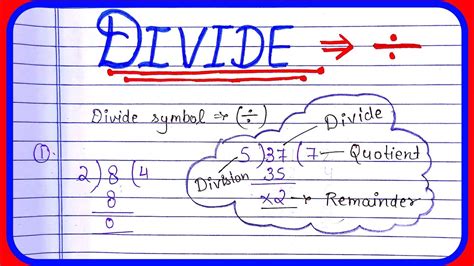 DIVIDE ⇒ ÷
Divide symbol ⇒ (÷)
①.
2 ) 8 ( 4
8
0
Divide
5 ) 37 ( 7 - Quotient
Division
35
×2 → Remainder